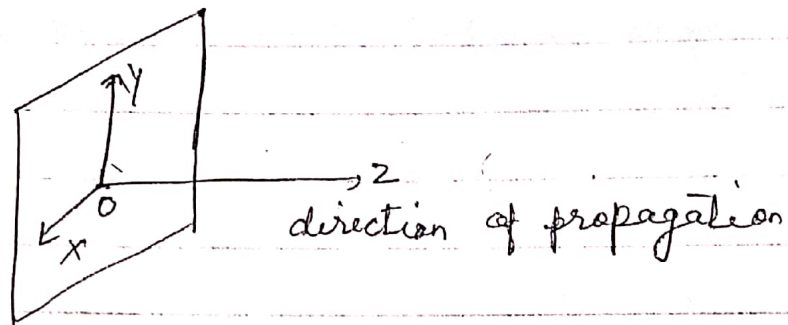 Y
Z
O
X
direction of propagation